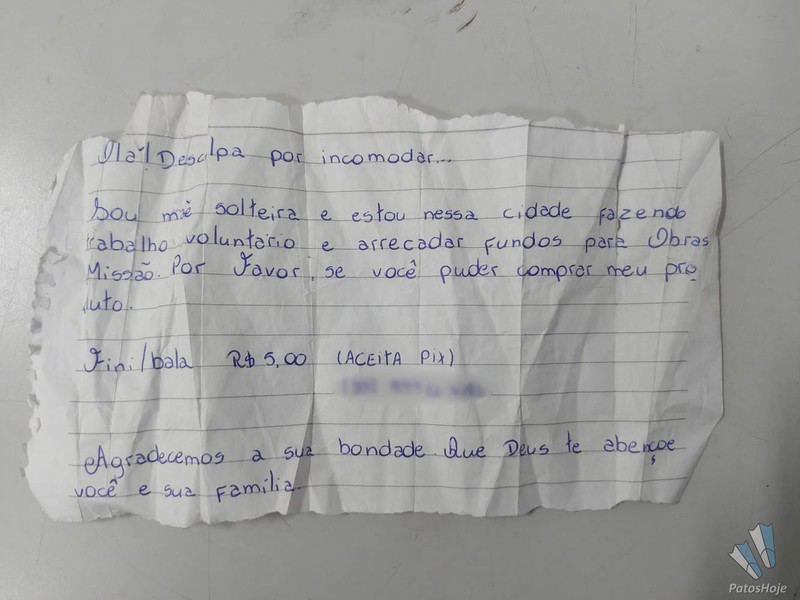 Olá! Desculpa por incomodar...
Sou mãe solteira e estou nessa cidade fazendo
trabalho voluntario e arrecadar fundos para Obras
Missão. Por Favor, se você puder comprar meu pro
duto.
Fini/bala R$ 5,00 (ACEITA PIX)
Agradecemos a sua bondade Que Deus te abençoe
você e sua família.
PatosHoje